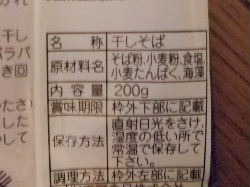 干し
ラパ
き回
名 称 干しそば
原材料名 そば粉,小麦粉,食塩,
小麦たんぱく,海藻
内 容 量 200g
賞味期限 枠外下部に記載
保存方法 直射日光をさけ,
湿度の低い所で
常温で保存して
下さい。
調理方法 枠外左部に記載